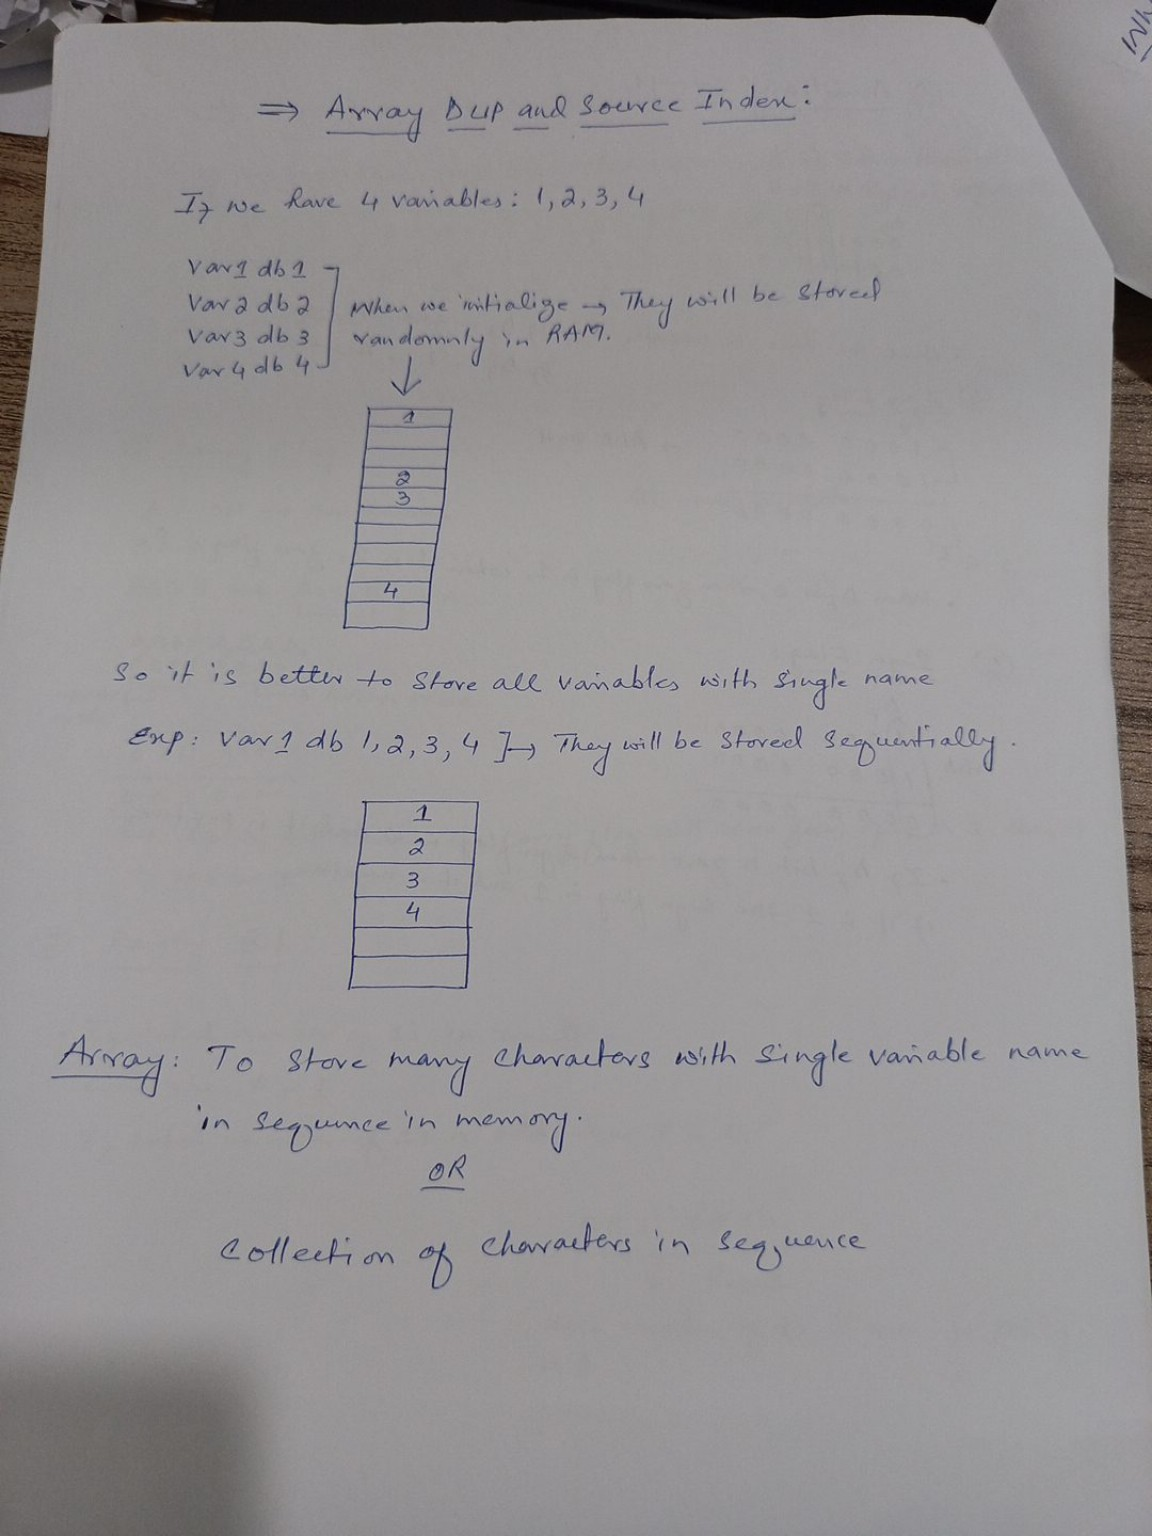 ⇒ Array DUP and Source Index:
If we have 4 variables: 1, 2, 3, 4
Var1 db 1
Var2 db 2
Var3 db 3
Var4 db 4
When we initialize → They will be stored
randomnly in RAM.
1
2
3
4
So it is better to store all variables with single name
Exp: Var1 db 1, 2, 3, 4 ]→ They will be stored sequentially.
1
2
3
4
Array: To store many characters with single variable name
in sequence in memory.
OR
Collection of characters in sequence